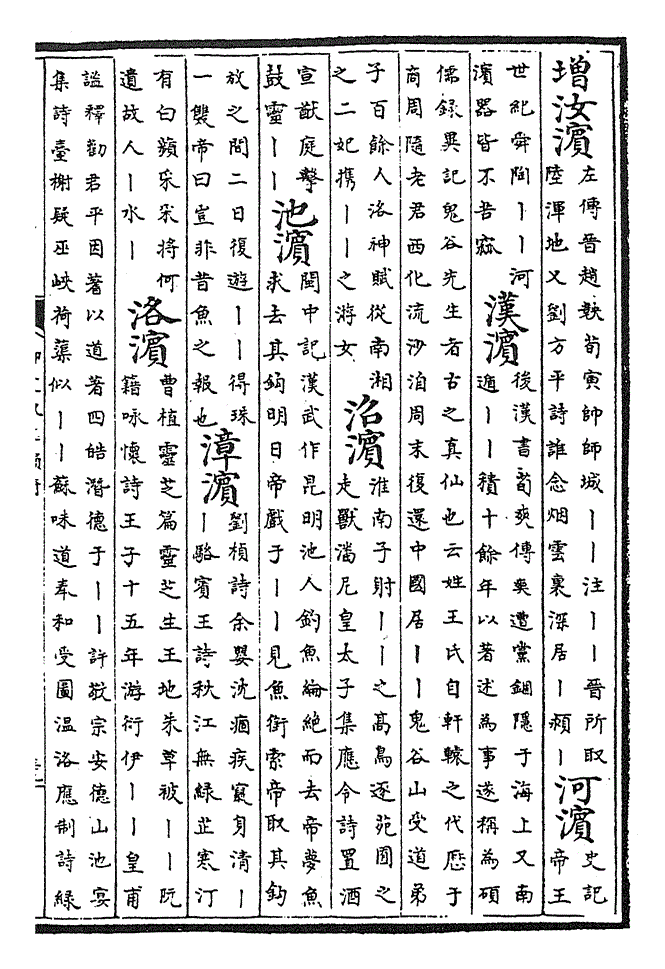 增汝濱
左傳晉趙鞅荀寅帥師城丨丨注丨丨晉所取
陸渾地又劉方平詩誰念烟雲裏深居丨潁丨
河濱
史記
帝王
世紀舜陶丨丨河
濱器皆不苦窳
漢濱
後漢書荀爽傳爽遭黨錮隱于海上又南
遁丨丨積十餘年以著述為事遂稱為碩
儒錄異記鬼谷先生者古之真仙也云姓王氏自軒轅之代歷于
商周隨老君西化流沙洎周末復還中國居丨丨鬼谷山受道弟
子百餘人洛神賦從南湘
之二妃携丨丨之游女
沼濱
淮南子射丨丨之高鳥逐苑囿之
走獸潘尼皇太子集應令詩置酒
宣猷庭擊
鼓靈丨丨
池濱
関中記漢武作昆明池人釣魚綸絕而去帝夢魚
求去其鉤明日帝戲于丨丨見魚銜索帝取其鉤
放之間二日復遊丨丨得珠
一雙帝曰豈非昔魚之報也
漳濱
劉楨詩余嬰沈痼疾竄身清丨
丨駱賓王詩秋江無綠芷寒汀
有白蘋采采將何
遺故人丨水丨
洛濱
曹植靈芝篇靈芝生王地朱草被丨丨阮
籍咏懷詩王子十五年游衍伊丨丨皇甫
謐釋勸君平因著以道著四皓潛德于丨丨許敬宗安德山池宴
集詩臺榭疑巫峽荷蕖似丨丨蘇味道奉和受圖溫洛應制詩綠